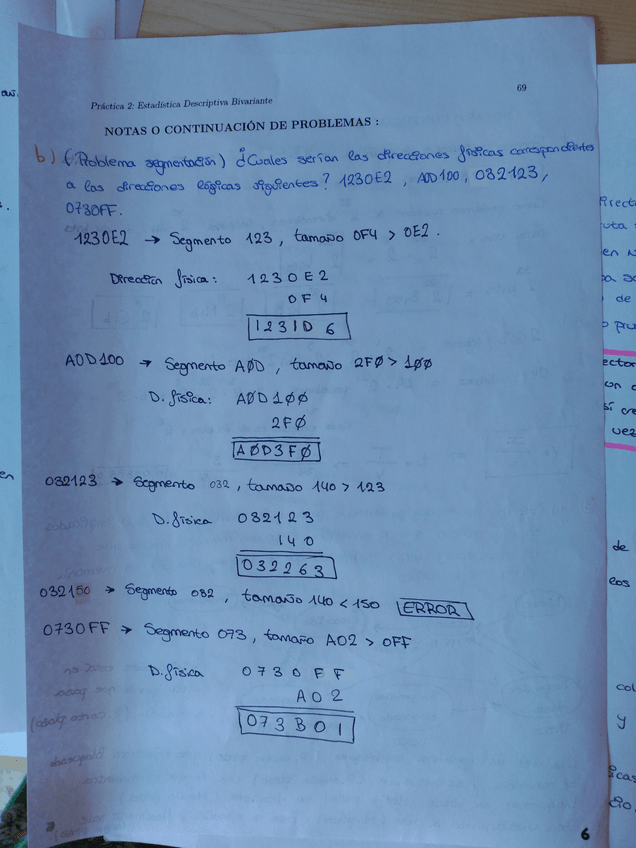 69
Práctica 2: Estadística Descriptiva Bivariante
NOTAS O CONTINUACIÓN DE PROBLEMAS :
b) (Problema segmentación) ¿Cuales serían las direcciones físicas correspondientes
a las direcciones lógicas siguientes? 1230E2, A0D100, 032123,
0730FF.
1230E2 → Segmento 123, tamaño 0F4 > 0E2.
Dirección física: 1230E2
0F4
1231D6
A0D100 → Segmento AØD, tamaño 2FØ > 1ØØ
D. física: AØD1ØØ
2FØ
AØD3FØ
032123 → Segmento 032, tamaño 140 > 123
D. física 032123
140
032263
032150 → Segmento 032, tamaño 140 < 150 ERROR
0730FF → Segmento 073, tamaño A02 > 0FF
D. física 0730FF
A02
073B01
6